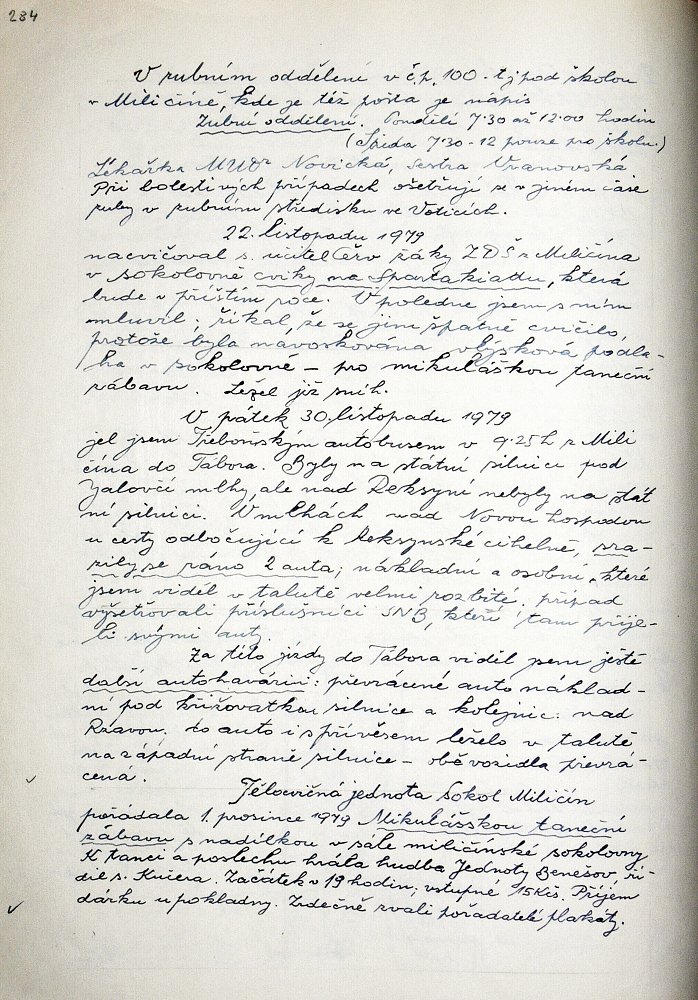 284
V zubním oddělení v č.p. 100 - tj pod školou
v Miličíně, kde je též pošta je nápis
Zubní oddělení. Pondělí 7.30 až 12.00 hodin
(Středa 7.30 - 12 pouze pro školu.)
Lékařka MUDr Novická, sestra Vranovská
Při bolestivých případech ošetřují se v jiném čase
zuby v zubním středisku ve Voticích.
22. listopadu 1979
nacvičoval s. učitel žáky ZDŠ z Miličína
v sokolovně cviky na Spartakiadu, která
bude v příštím roce. V poledne jsem s ním
mluvil; říkal, že se jim špatně cvičilo,
protože byla navoskována vlýsková podla-
ha v sokolovně - pro mikulášskou taneční
zábavu. Ležel již sníh.
V pátek 30. listopadu 1979
jel jsem Třeboňským autobusem v 9.25 h z Mili
čína do Tábora. Byly na státní silnici pod
Jalovčí mlhy, ale nad Reksyní nebyly na stát
ní silnici. V mlhách nad Novou hospodou
u cesty odbočující k Reksynské cihelně, sra-
zily se ráno 2 auta; nákladní a osobní, které
jsem viděl v talutě velmi rozbité; případ
vyšetřovali příslušníci SNB, kteří tam přije-
li svými auty.
Za této jízdy do Tábora viděl jsem ještě
další autohavárii: převrácené auto náklad-
ní pod křižovatkou silnice a kolejnic: nad
Rzavou. to auto i s přívěsem leželo v talutě
na západní straně silnice - obě vozidla převrá-
cená.
Tělocvičná jednota Sokol Miličín
pořádala 1. prosince 1979 Mikulášskou taneční
zábavu s nadílkou v sále miličínské sokolovny
K tanci a poslechu hrála hudba Jednoty Benešov, ří-
dil s. Kučera. Začátek v 19 hodin; vstupné 15 Kčs. Příjem
dárků u pokladny. Srdečně zvali pořadatelé plakáty.